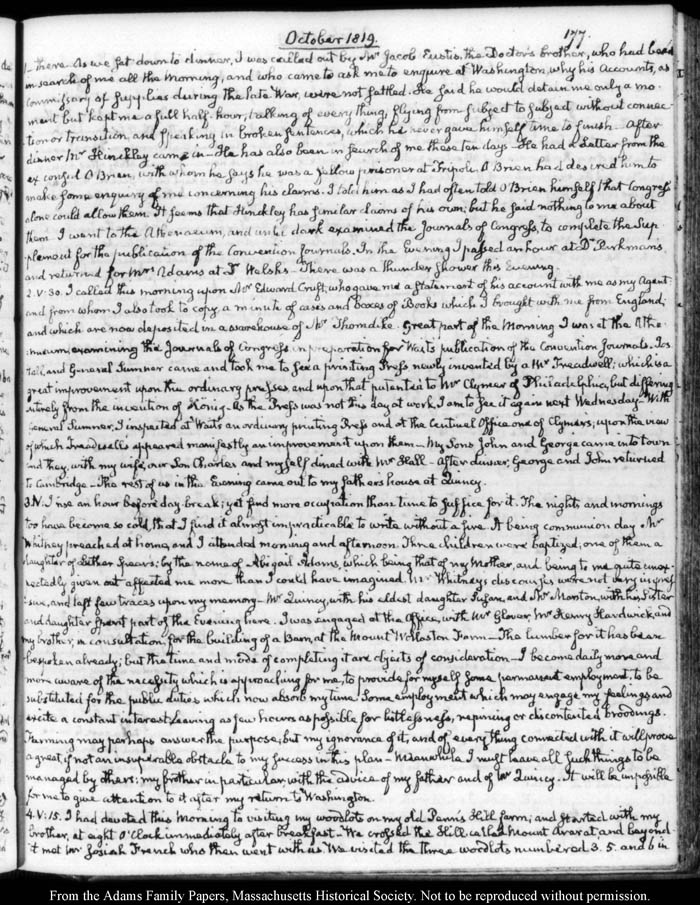 October 1819.
177.
1- there. As we sat down to dinner, I was called out by Mr Jacob Eustis, the Doctors brother, who had been
in search of me all the Morning, and who came to ask me to enquire at Washington, why his Accounts, as
Commissary of Supplies during the late War, were not settled. He said he would detain me only a mo-
ment but kept me a full half-hour, talking of every thing, flying from subject to subject without connec-
tion or transition, and speaking in broken sentences, which he never gave himself time to finish- After
dinner Mr Hinckley came in- He has also been in search of me these ten days- He had a Letter from the
ex consul O Brien, with whom he says he was a fellow prisoner at Tripoli. O Brien had desired him to
make some enquiry of me concerning his claims. I told him as I had often told O Brien himself that Congress
alone could allow them. It seems that Hinckley has similar claims of his own; but he said nothing to me about
them. I went to the Athenaeum, and until dark examined the Journals of Congress, to complete the Sup
plement for the publication of the Convention Journals. In the Evening I passed an hour at Dr Parkman's
and returned for Mrs Adams at Welsh's- There was a thunder shower this Evening.
2. V:30. I called this morning upon Mr Edward Cruft, who gave me a statement of his account with me as my Agent;
and from whom I also took to copy a minute of cases and boxes of Books which I brought with me from England;
and which are now deposited in a ware house of Mr Thorndike. Great part of the Morning I was at the Athe-
naeum, examining the Journals of Congress in preparation for Wait's publication of the Convention Journals.
and General Sumner came and took me to see a printing Press newly invented by a Mr Treadwell; which is a
great improvement upon the ordinary presses and upon that patented to Mr Clymer of Philadelphia, but differing
entirely from the invention of König. As the Press was not this day at work I am to see it again next Wednesday. With
General Sumner, I inspected at Wait's an ordinary printing Press and at the Centinel Office one of Clymers; upon the view
of which Treadwells appeared manifestly an improvement upon them- My Sons John and George came into town
and they, with my wife, our Son Charles and myself dined with Mr Hall- After dinner, George and John returned
to Cambridge- The rest of us in the Evening came out to my father's house at Quincy.
3. IV. I rise an hour before day-break; yet find more occupation than time to suffice for it. The nights and mornings
too have become so cold, that I find it almost impracticable to write without a fire. It being communion day Mr
Whitney preached at home, and I attended morning and afternoon. Three children were baptized, one of them a
daughter of Lether Spears; by the name of Abigail Adams, which being that of my Mother, and being to me quite unex-
pectedly given out affected me more than I could have imagined. Mr Whitney's discourses were not very impres-
sive, and left few traces upon my memory- Mr Quincy, with his eldest daughter Susan, and Mr Marston, with his Sister
and daughter spent part of the Evening here. I was engaged at the Office, with Mr Glover, Mr Henry Hardwick, and
my brother, in consultation, for the building of a Barn, at the Mount Wollaston Farm- The lumber for it has been
bespoken already; but the time and mode of completing it are objects of consideration- I become daily more and
more aware of the necessity which is approaching for me, to provide for myself some permanent employment, to be
substituted for the public duties which now absorb my time. Some employment which may engage my feelings and
excite a constant interest, leaving as few hours as possible for listlessness, repining or discontented broodings.
Farming may perhaps answer the purpose; but my ignorance of it, and of every thing connected with it will prove
a great, if not an insuperable obstacle to my success in this plan- Meanwhile I must leave all such things to be
managed by others; my brother in particular with the advice of my father and of Mr Quincy. It will be impossible
for me to give attention to it after my return to Washington.
4. V:15. I had devoted this Morning to visiting my woodlots on my old Penn's Hill farm; and started with my
brother, at eight O'Clock immediately after breakfast. We crossed the Hill called Mount Ararat, and beyond
it met Mr Josiah French who then went with us. We visited the three woodlots numbered 3. 5. and 6 in
From the Adams Family Papers, Massachusetts Historical Society. Not to be reproduced without permission.